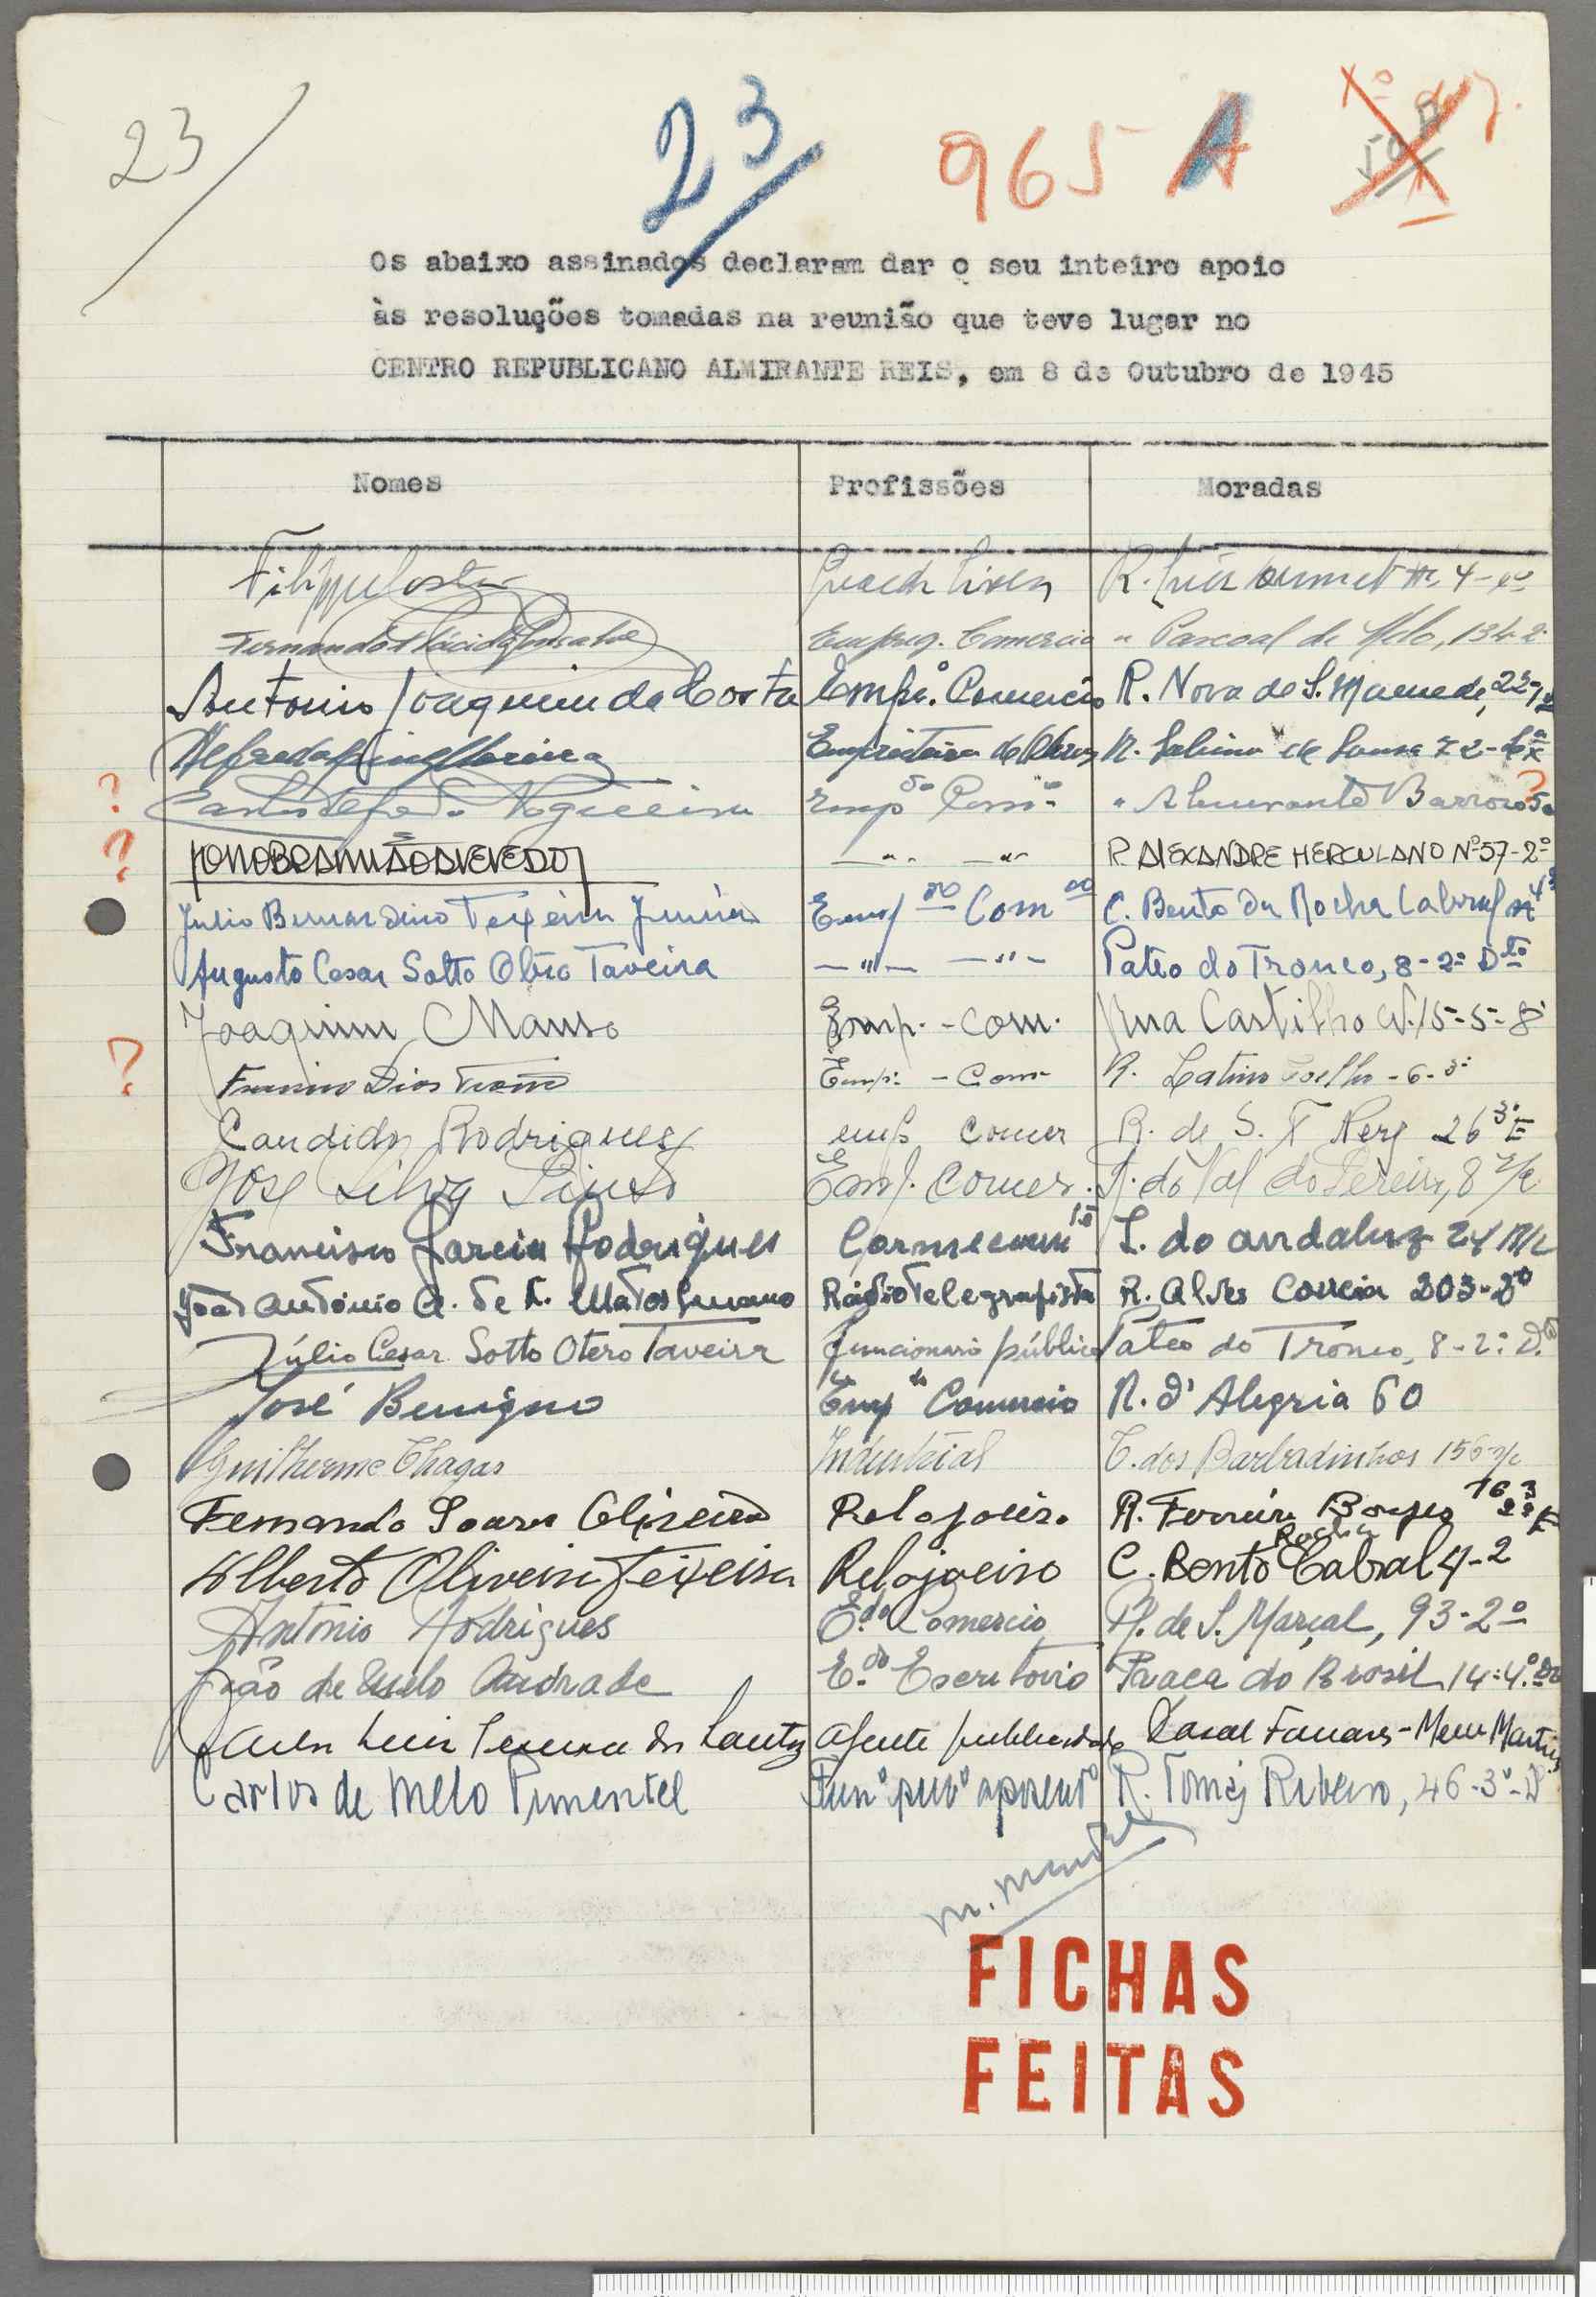 23
23
965 A
Os abaixo assinados declaram dar o seu inteiro apoio
às resoluções tomadas na reunião que teve lugar no
CENTRO REPUBLICANO ALMIRANTE REIS, em 8 de Outubro de 1945
Nomes Profissões Moradas
Filippe Costa R. 4-
Fernando Plácido Empreg. Comercio " Pascoal de Melo, 134-2º
Antonio Joaquim da Costa Empr.º Comercio R. Nova de S. Mamede, 22-1º
Alfredo de Obras R. Sabino de Sousa 72-
? Carlos Alfredo Nogueira Empº Comº " Almirante Barroso 50 ?
? AZEVEDO —"— —"— R. ALEXANDRE HERCULANO Nº 57-2º
Julio Bernardino Teixeira Junior Empdo Com C. Bento da Rocha Cabral nº 4
Augusto Cesar Sotto Otero Taveira —"— —"— Pateo do Tronco, 8-2º Dto
Joaquim Manso Emp. - Com. Rua Castilho Nº 15-5º
? Dias Emp. - Com. R. Latino Coelho - 6-3º
Candido Rodrigues emp comer R. de S. F Nery 26 3º E
José Silva Pinto Emp. Comer. R. do Val do Pereiro, 8 r/c
Francisco Garcia Rodrigues L. do andaluz 24 R/c
João António de Matos Radiotelegrafista R. Alves Correia 203-2º
Júlio Cesar Sotto Otero Taveira funcionario público Pateo do Tronco, 8-2º D.to
José Benigno Empdo Comercio R. d'Alegria 60
Guilherme Chagas Industrial C. dos Barbadinhos 156 r/c
Fernando Soares Oliveira Relojoeiro R. Ferreira Borges 163 2º E
Alberto Oliveira Teixeira Relojoeiro C. Bento Rocha Cabral 4-2
Antonio Rodrigues E.do Comercio R. de S. Marçal, 93-2º
João de Melo Andrade E.do Escritorio Praça do Brasil 14-4º D
Luis dos Santos Agente publicidade Casal - Mem Martins
Carlos de Melo Pimentel Funº pubº aposentº R. Tomás Ribeiro, 46-3º-D
M. Mendes
FICHAS
FEITAS